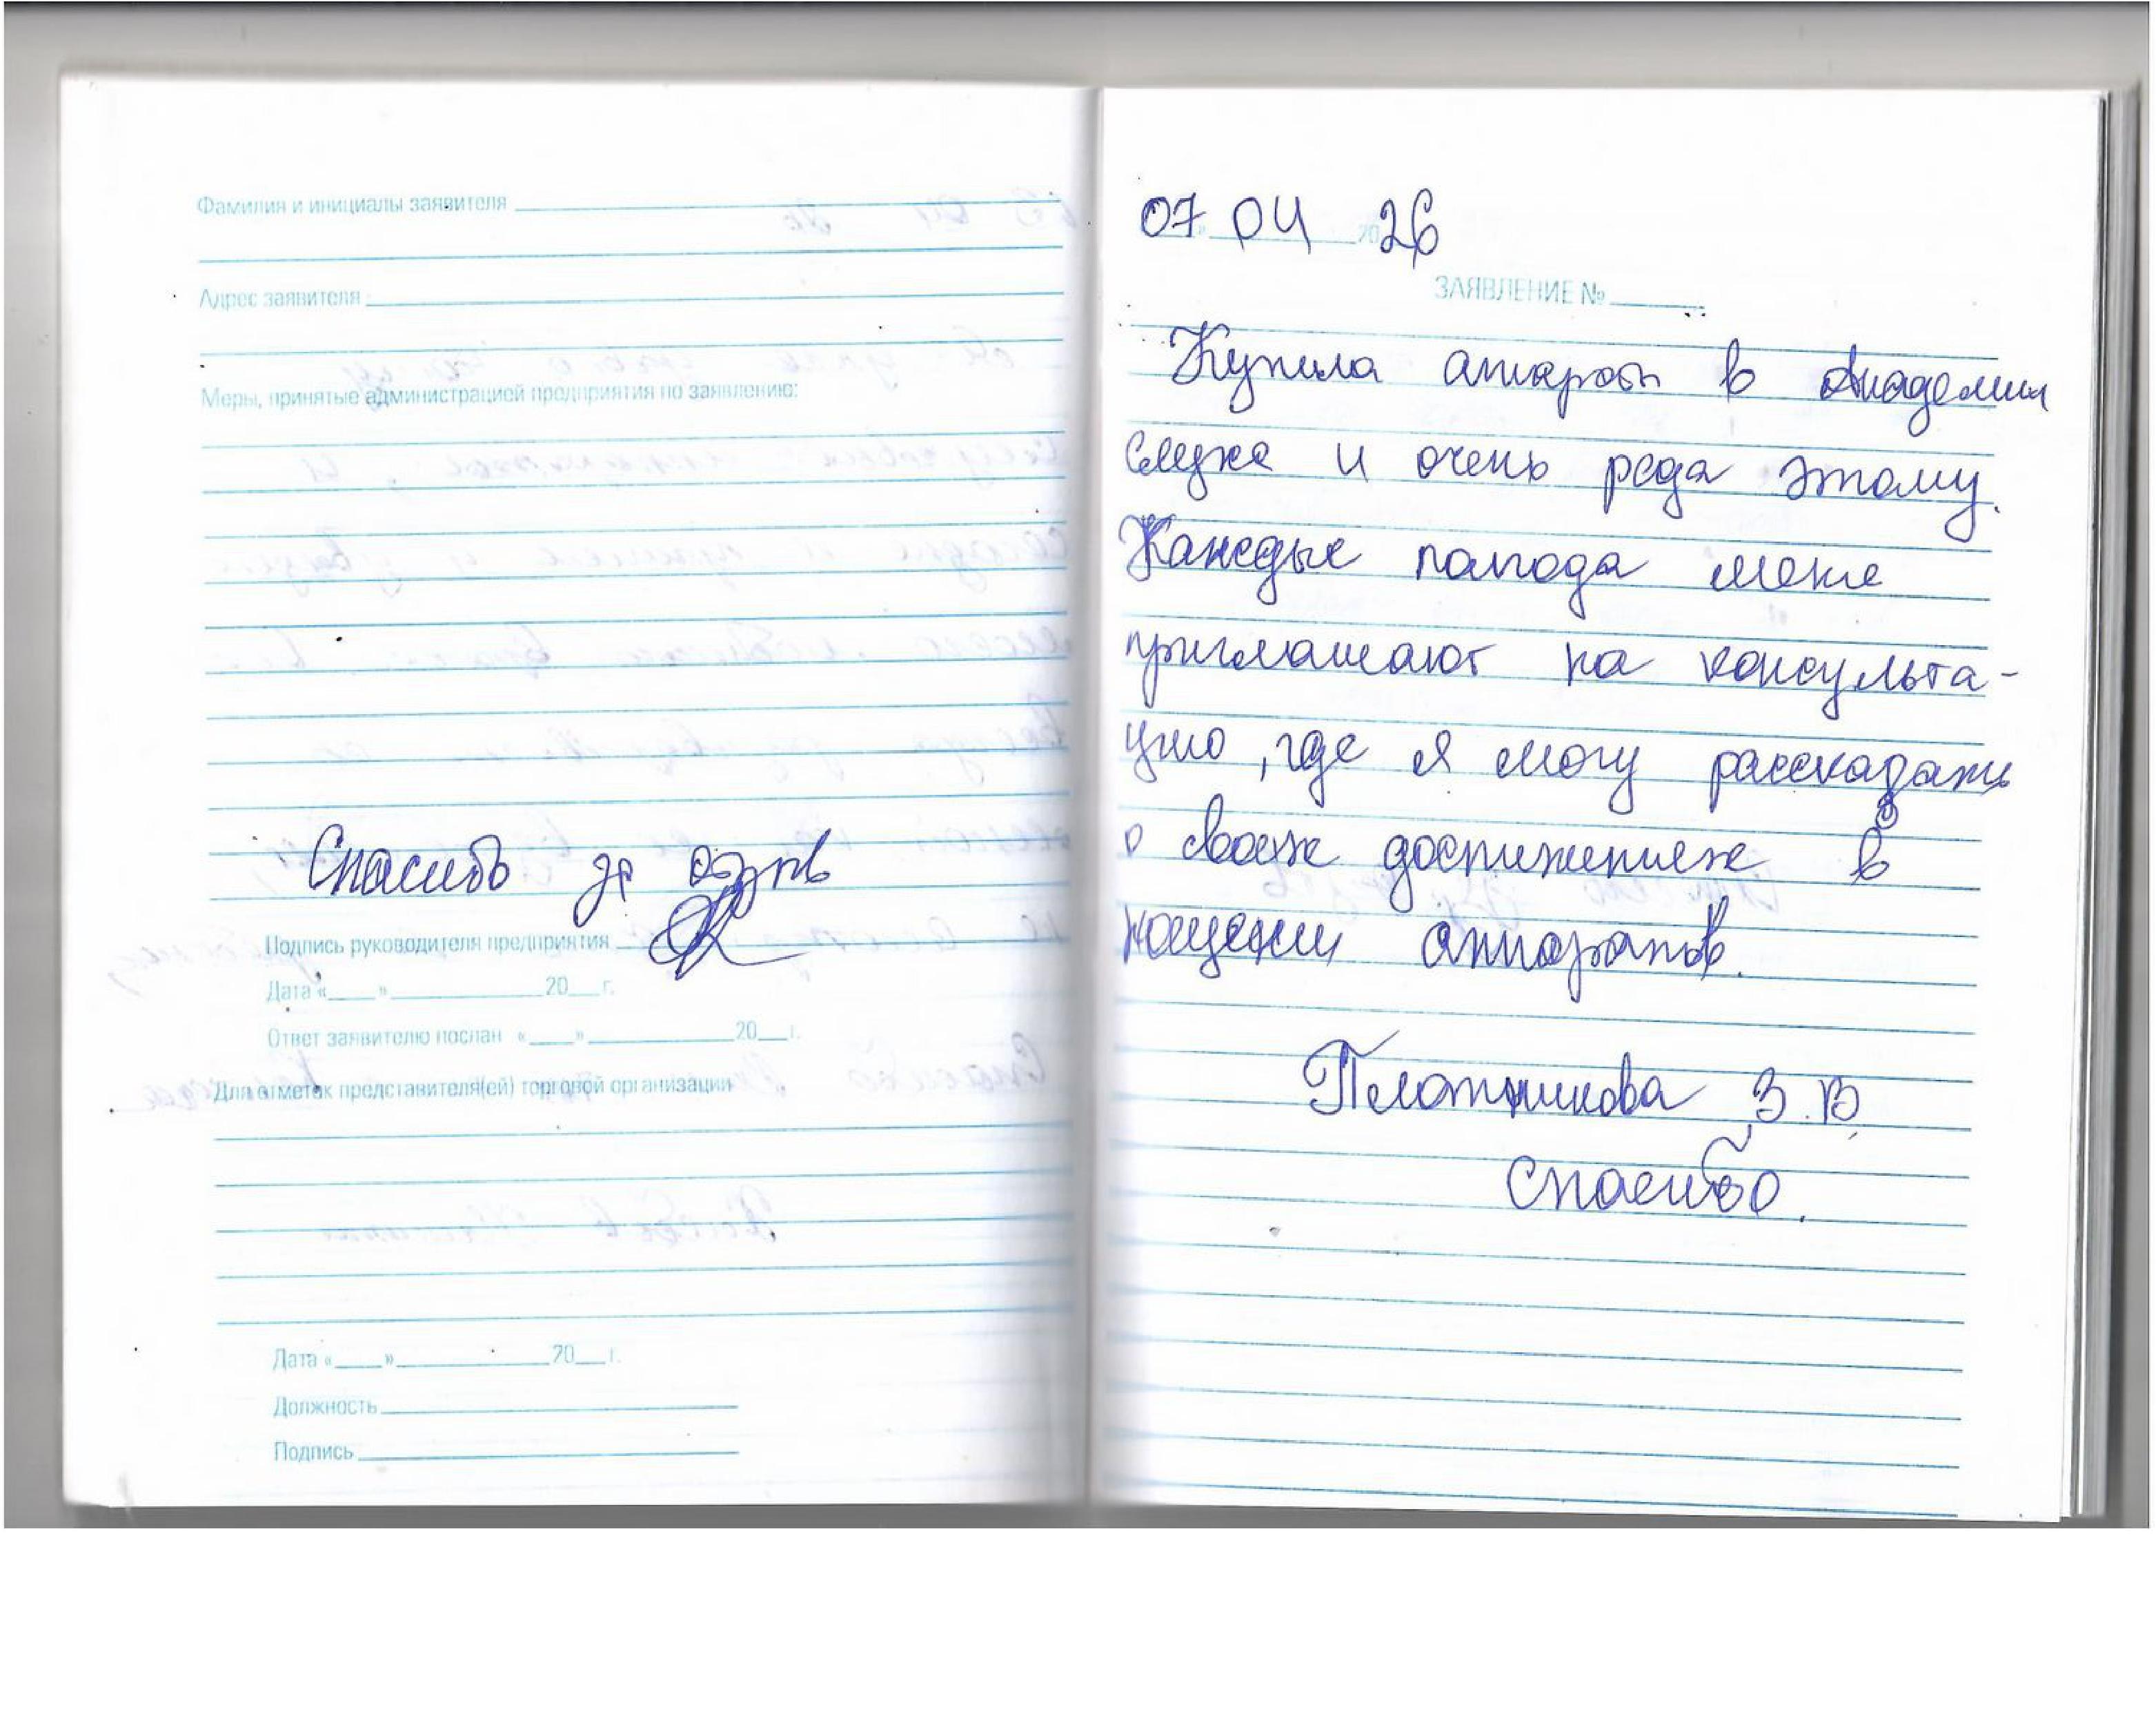 Фамилия и инициалы заявителя
Адрес заявителя
Меры, принятые администрацией предприятия по заявлению:
Спасибо за отзыв
Подпись руководителя предприятия
Дата «____»____________20___г.
Ответ заявителю послан «____»____________20___г.
Для отметок представителя(ей) торговой организации
Дата «____»____________20___г.
Должность
Подпись
07 04 2026
ЗАЯВЛЕНИЕ №
Купила аппараты в Академии
слуха и очень рада этому.
Каждые полгода меня
приглашают на консульта-
цию, где я могу рассказать
о своих достижениях в
ношении аппаратов.
Плотникова З.В.
Спасибо.